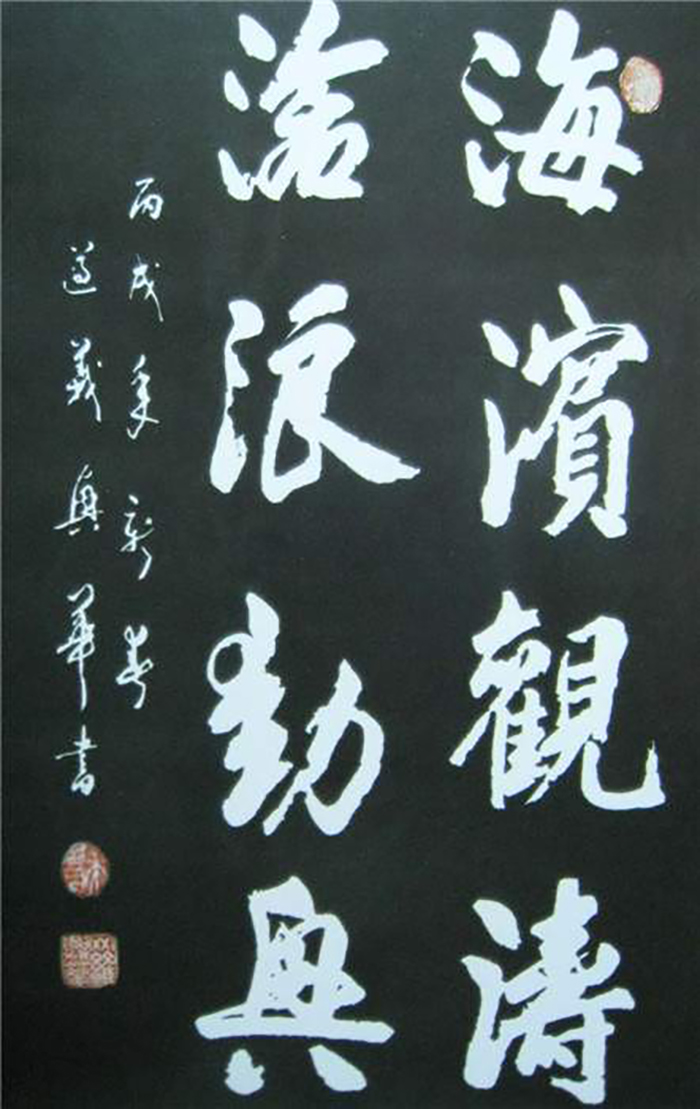 海濱觀濤
滄浪動興
丙戌年新春
遵義興華書